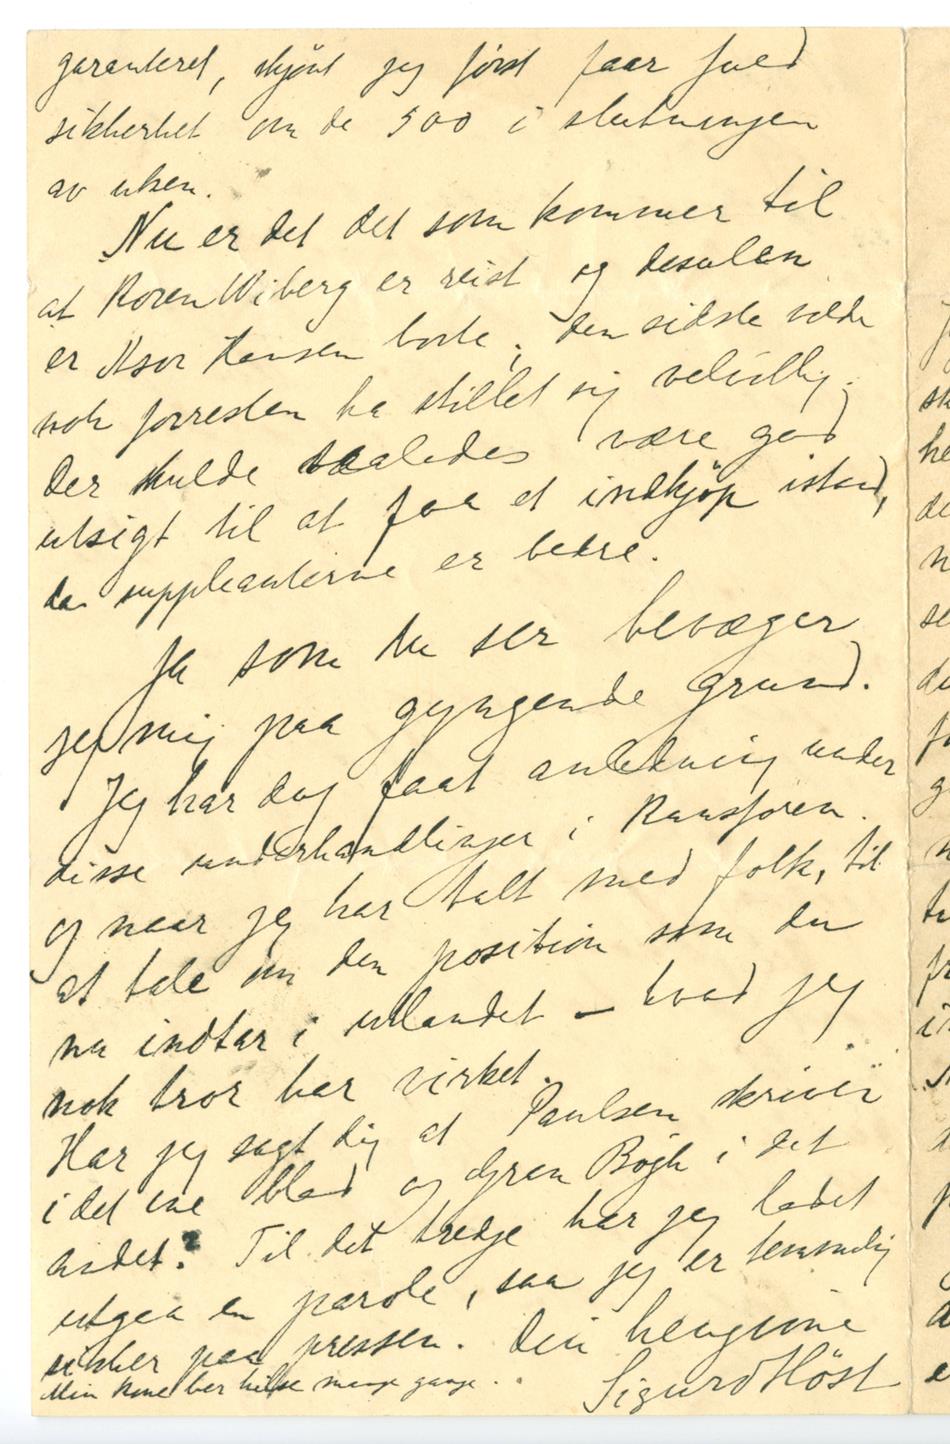 garanteret, skjönt jeg först faar fuld
sikkerhet om de 500 i slutningen
av uken.
Nu er det det som kommer til
at Koren Wiberg er reist og desuten
er Konsul Hansen borte; den sidste vilde
nok forresten ha stillet sig velvillig.
Der skulde saaledes være god
utsigt til at faa et indkjøp istand,
da suppleanterne er bedre.
Ja som du ser bevæger
jeg mig paa gyngende grund.
Jeg har dog faat anledning under
disse underhandlinger i Kunstforen.
og naar jeg har talt med folk, til
at tale om den position som du
nu indtar i utlandet – hvad jeg
nok tror har virket.
Har jeg sagt dig at Paulsen skriver
i det ene blad og Gran Bøgh i det
andet? Til det tredje har jeg ladet
utgaa en parole, saa jeg er temmelig
sikker paa pressen. Din hengivne
Sigurd Höst
Min kone ber hilse mange gange.